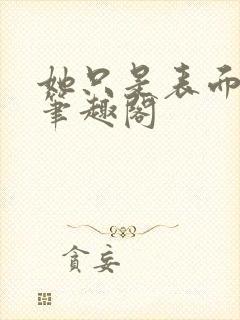 她只是表而
笔趣阁
貪妄